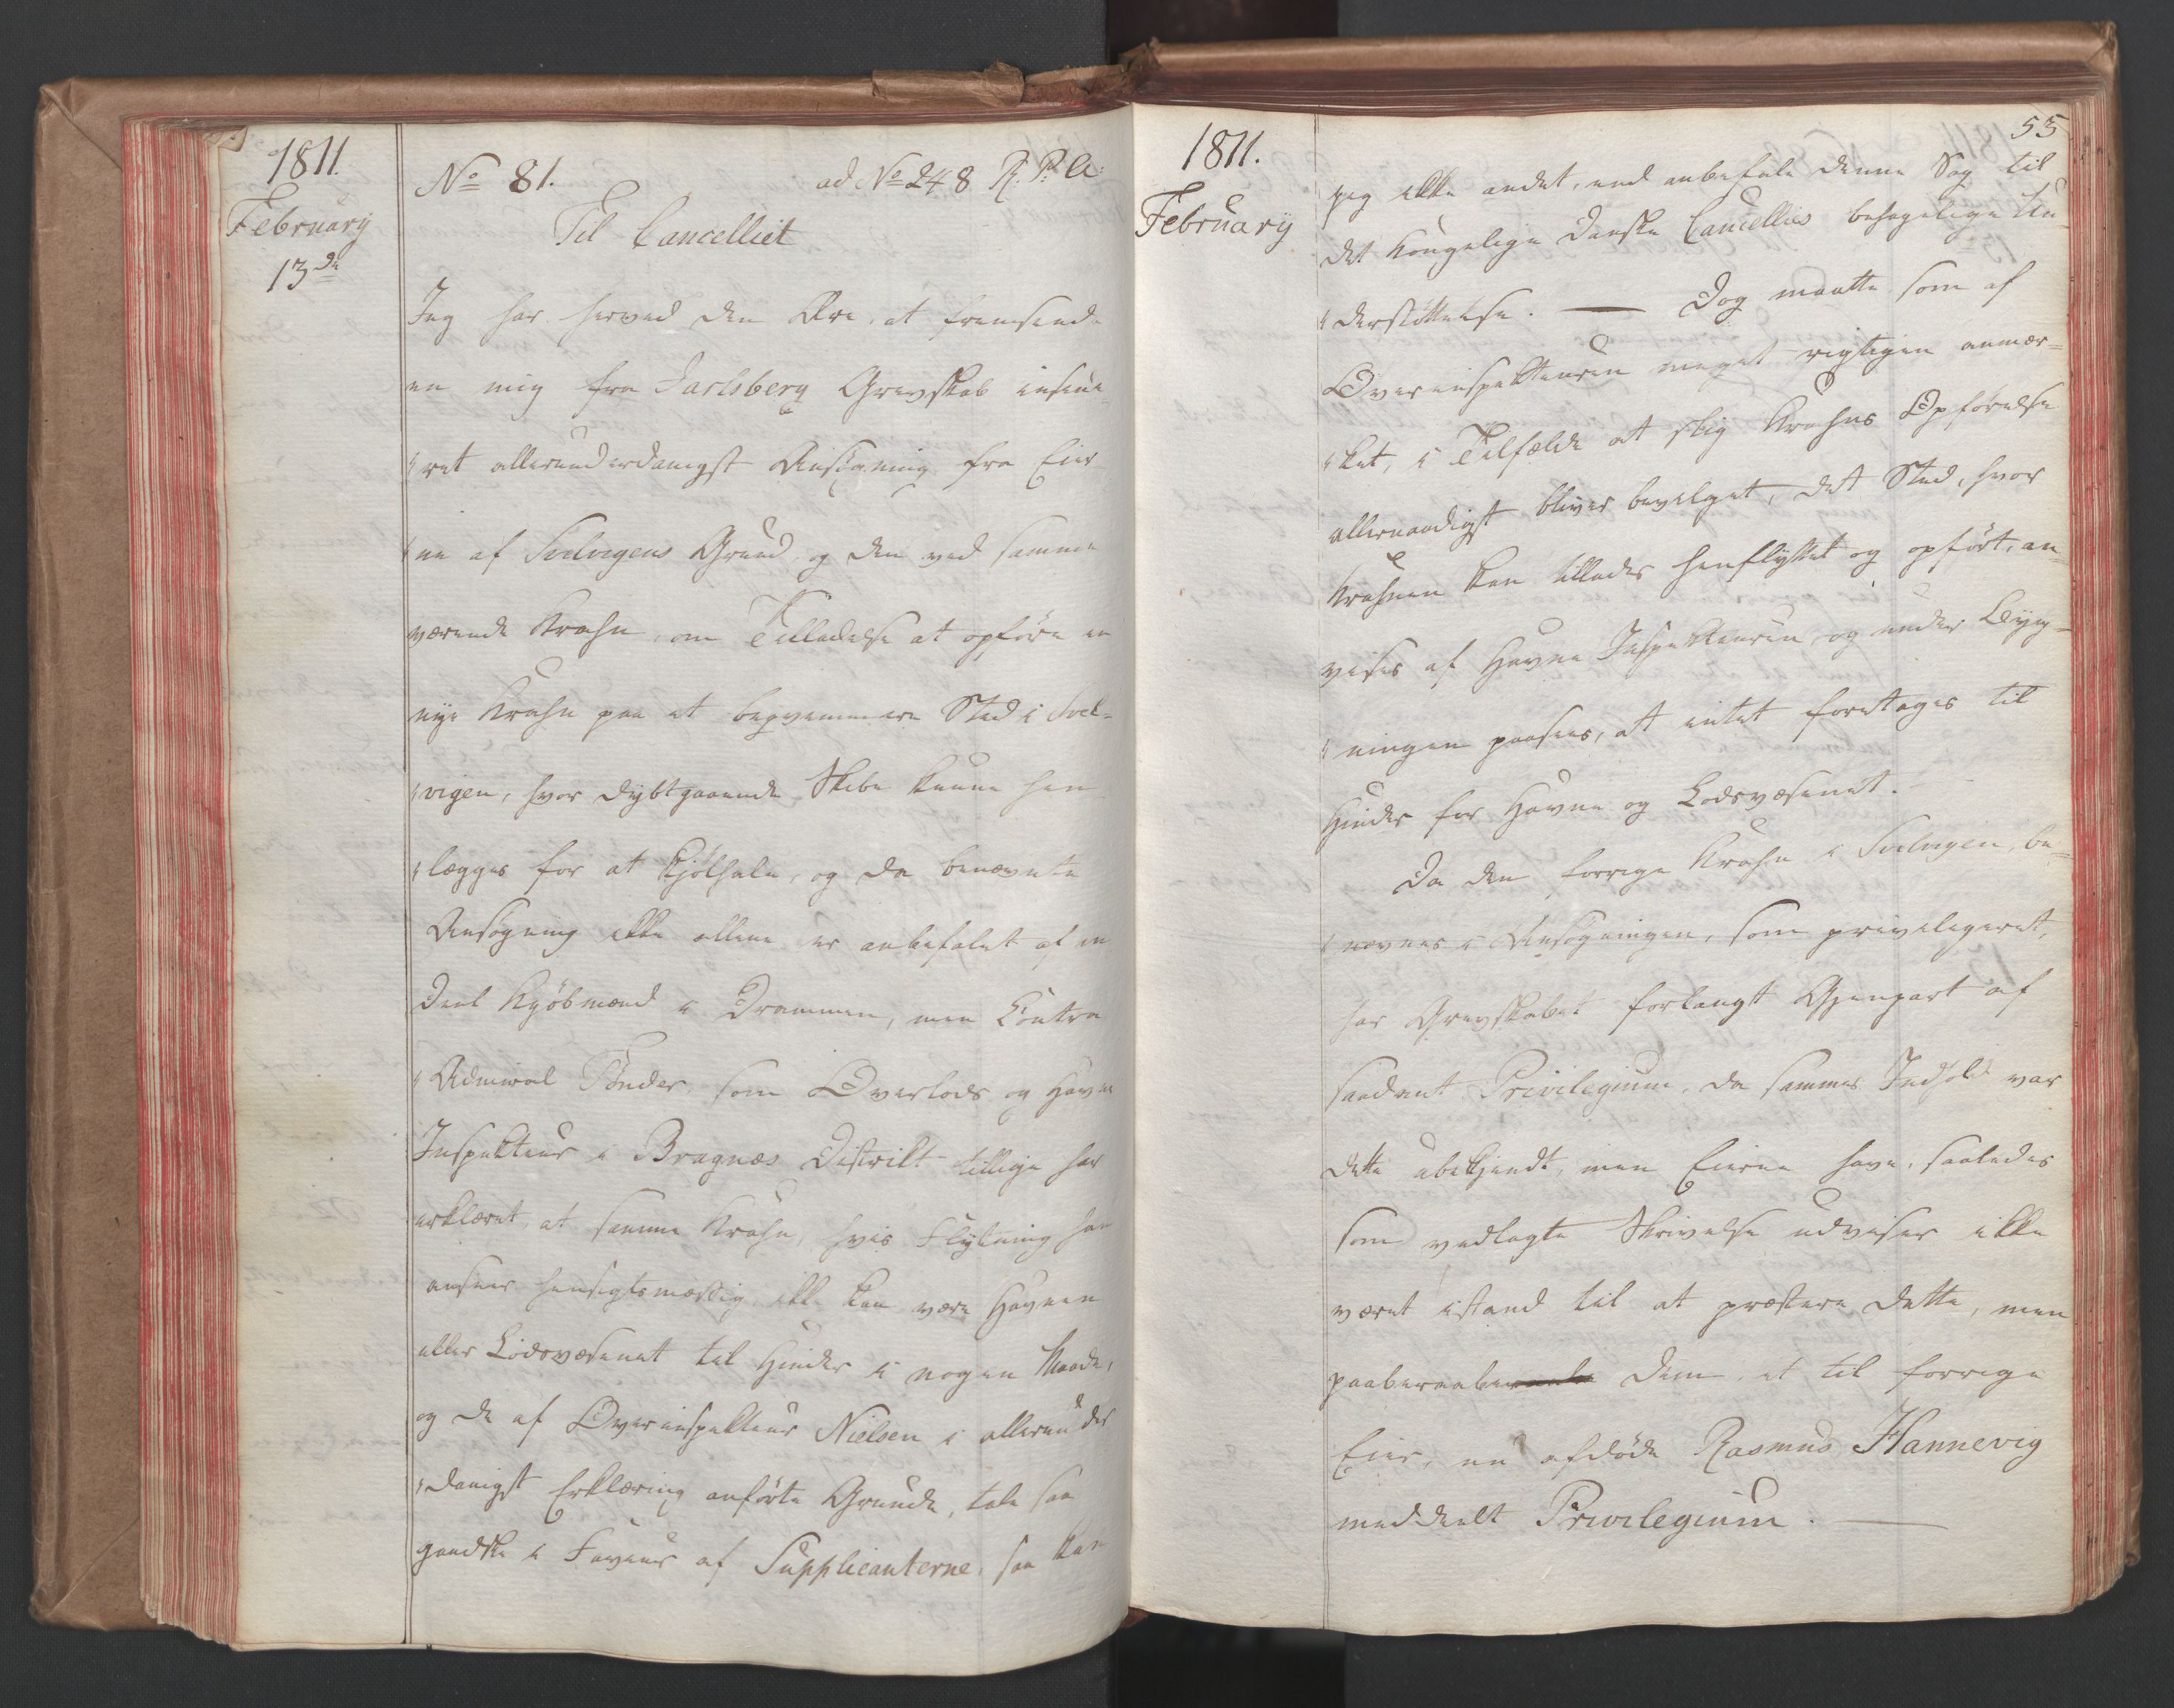 1811.
February
13de
No 81. ad No 248 R. P. A:
Til Cancelliet
Jeg har herved den Ære, at fremsende
en mig fra Jarlsberg Grevskab insinue-
"ret allerunderdanigst Ansøgning fra Eier-
"ne af Svelvigens Grund og den ved samme
værende Krahn, om Tilladelse at opføre en
nye Krahn paa et beqvemmere Sted i Svel-
"vigen, hvor dybtgaaende Skibe kunne hen
"lægges for at kjølhale, og da benævnte
Ansøgning ikke allene er anbefalet af en
Deel Kjøbmænd i Drammen, men Contra
"Admiral Tønder som Overlods og Havne
Inspekteur i Bragnæs Distrikt tillige har
erklæret, at samme Krahn, hvis Flytning han
ansees hensigtsmæssig ikke kan være Havnen
eller Lodsvæsenet til Hinder i nogen Maade,
og de af Overinspekteur Nielsen i allerunder
"danigst Erklæring anførte Grunde, tale saa
gandske i Faveur af Supplicanterne, saa kan
1811.
February
55
jeg ikke andet, end anbefale denne Sag til
det Kongelige Danske Cancellies behagelige Un
"derstøttelse. — Dog maatte som af
Overinspekteuren meget rigtigen anmær-
"ket, i Tilfælde at slig Krahns Opførelse
allernaadigst bliver bevilget, det Sted, hvor
Krahnen kan tillades henflyttet og opført, an-
vises af Havne Inspekteuren, og under Byg-
"ningen paasees, at intet foretages til
Hinder for Havne og Lodsvæsenet.
Da den forrige Krahn i Svelvigen, be-
"nævnes i Ansøgningen, som privilegeret,
har Grevskabet forlangt Gjenpart af
saadant Privilegium, da sammes Indhold var
dette ubekjendt, men Eierne have, saaledes
som vedlagte Skrivelse udviser ikke
været istand til at præstere dette, men
paaberaabe dem et til forrige
Eier, nu afdøde Rasmus Hannevig
meddeelt Privilegium. —